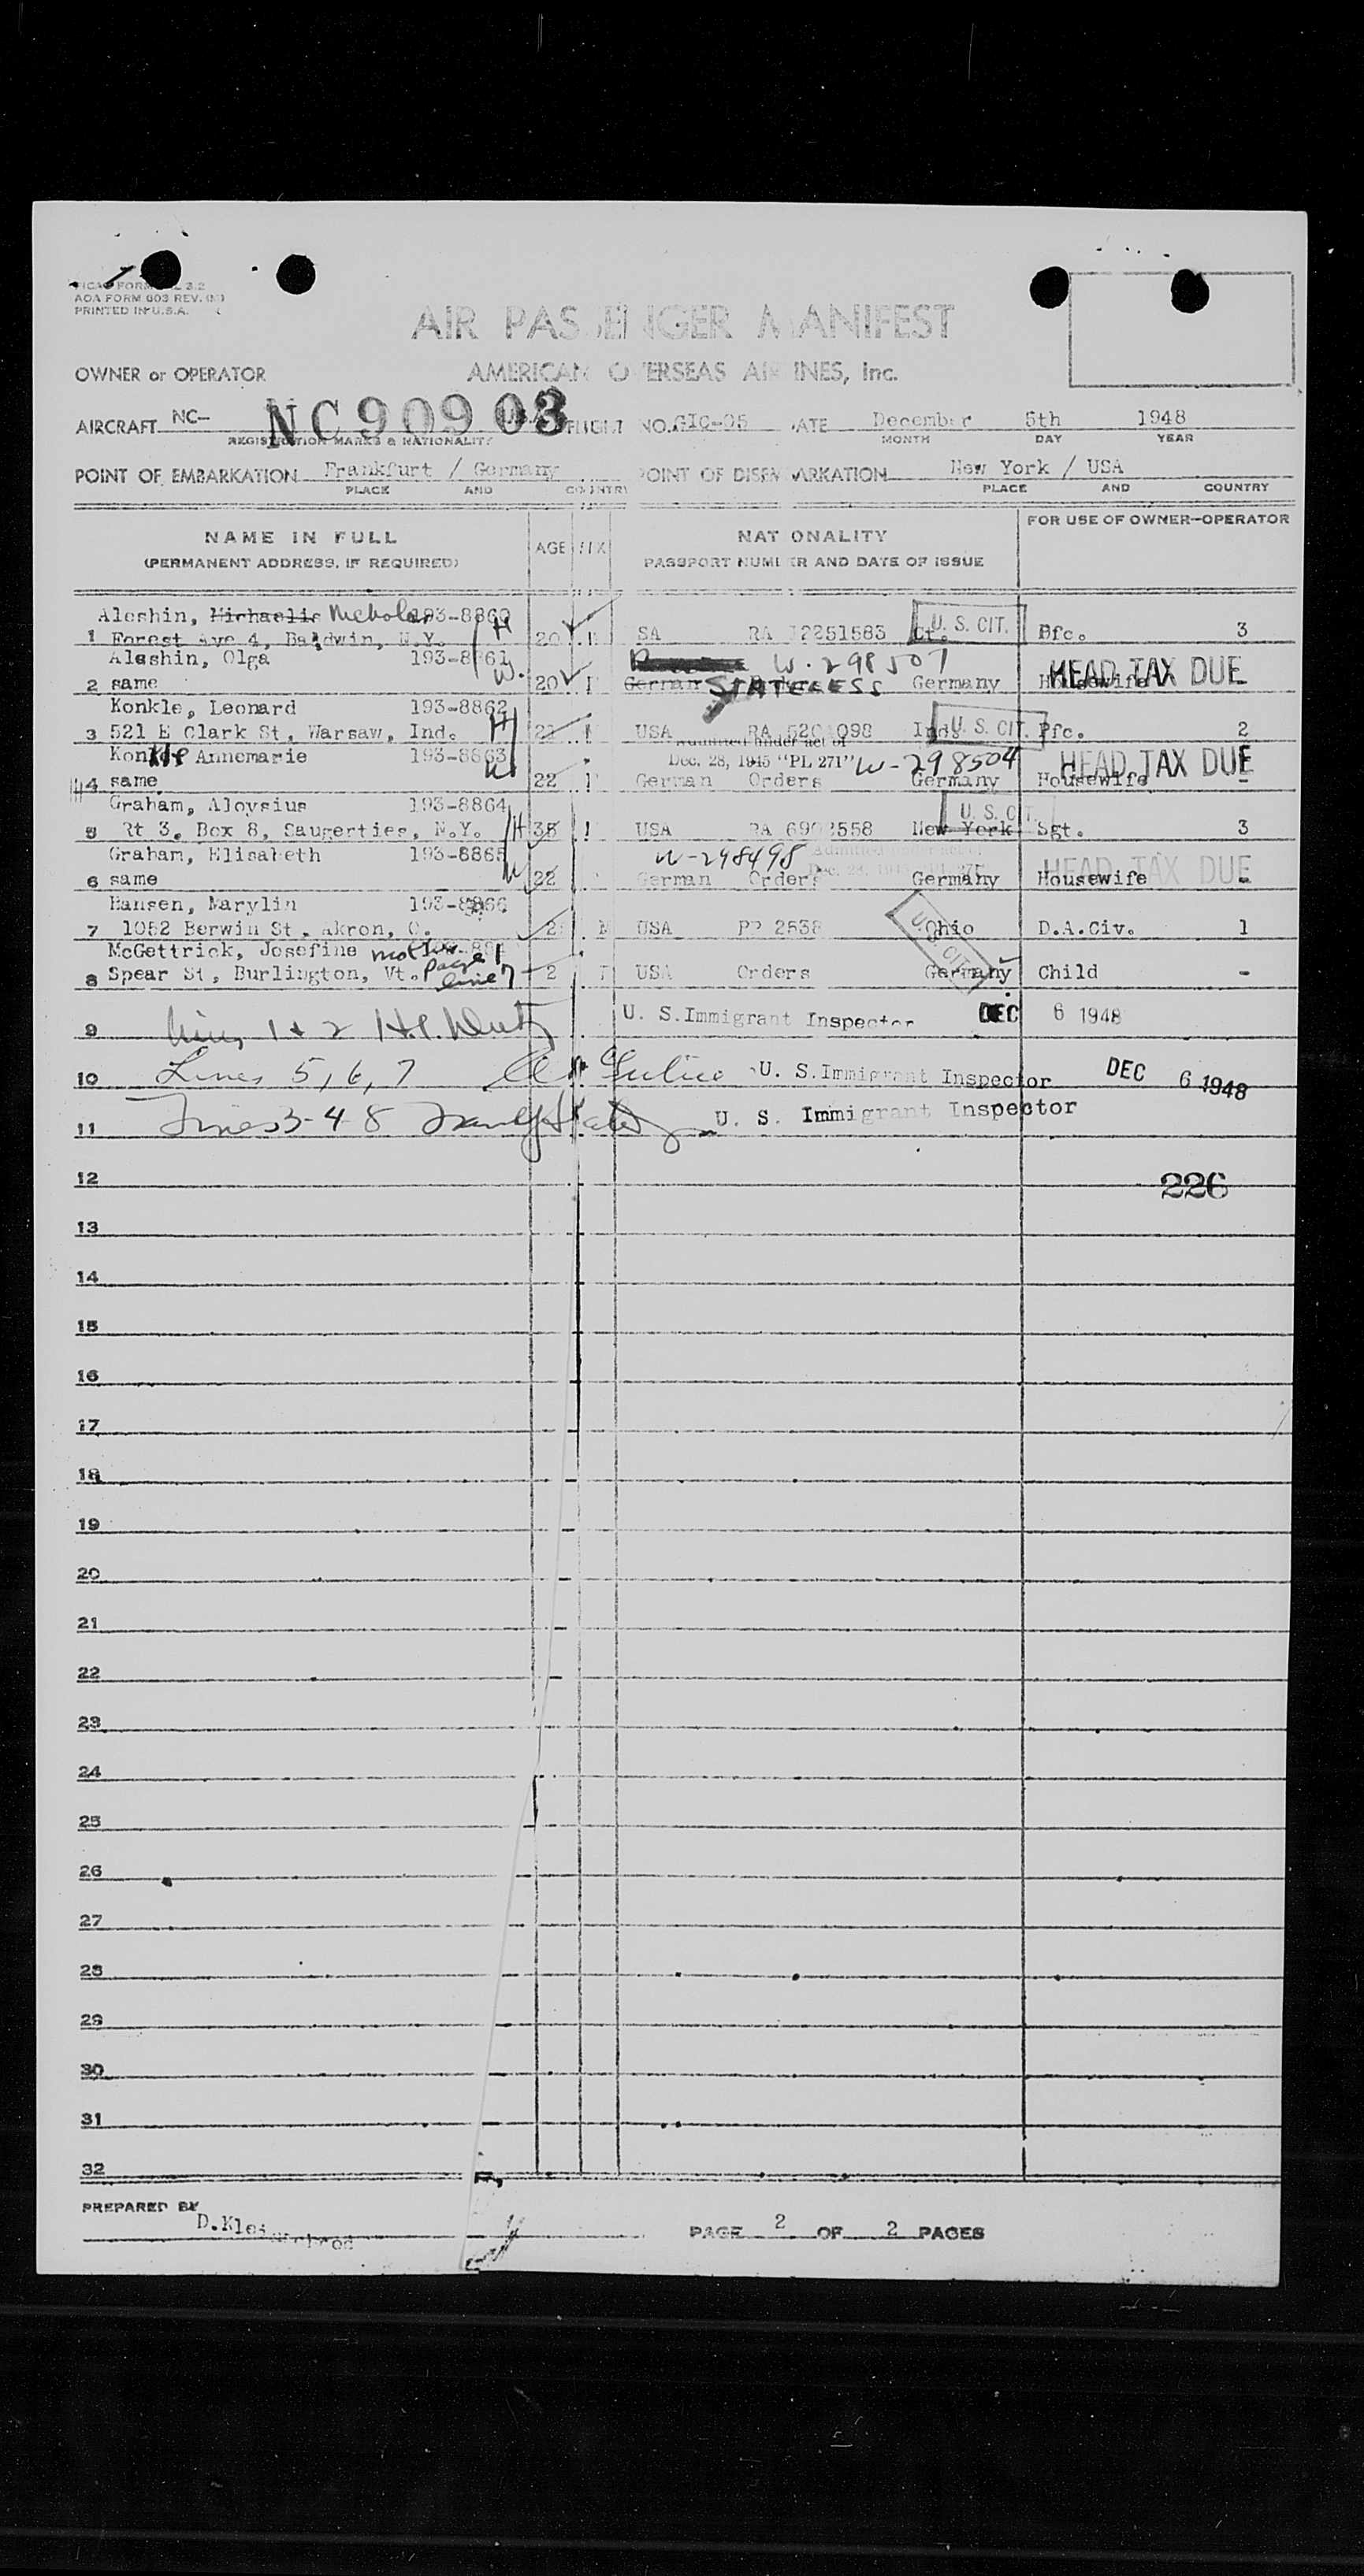 AOA FORM 603 REV.
PRINTED IN U.S.A.
AIR PASSENGER MANIFEST
OWNER or OPERATOR AMERICAN OVERSEAS AIRLINES, Inc.
AIRCRAFT NC- NC90903 FLIGHT NO. GIC-05 DATE December 5th 1948
REGISTRATION MARKS & NATIONALITY MONTH DAY YEAR
POINT OF EMBARKATION Frankfurt / Germany POINT OF DISEMBARKATION New York / USA
PLACE AND COUNTRY PLACE AND COUNTRY
NAME IN FULL AGE SEX NATIONALITY FOR USE OF OWNER-OPERATOR
(PERMANENT ADDRESS, IF REQUIRED) PASSPORT NUMBER AND DATE OF ISSUE
Aleshin, Michaelis Nicholas 193-8860 H
1 Forest Ave 4, Baldwin, N.Y. 20 SA RA 12251583 Ct. U. S. CIT. Pfc. 3
Aleshin, Olga 193-8861 W. W-298507 HEAD TAX DUE
2 same 20 German STATELESS Germany Housewife -
Konkle, Leonard 193-8862 H
3 521 E Clark St, Warsaw, Ind. 21 USA RA 098 Ind. U. S. CIT. Pfc. 2
Konkle Annemarie 193-8863 W Admitted under act of Dec. 28, 1945 "PL 271" W-298504 HEAD TAX DUE
4 same 22 German Orders Germany Housewife -
Graham, Aloysius 193-8864 U. S. CIT.
5 Rt 3, Box 8, Saugerties, N.Y. H 35 USA RA 6902558 New York Sgt. 3
Graham, Elisabeth 193-8865 W W-298498 Admitted under act of Dec. 28, 1945 HEAD TAX DUE
6 same 22 German Orders Germany Housewife -
Hansen, Marylin 193-8866
7 1052 Berwin St. Akron, O. 2 USA PP 2538 Ohio U. S. CIT. D.A.Civ. 1
McGettrick, Josefine mother Page 1
8 Spear St, Burlington, Vt. line 7 2 F USA Orders Germany Child -
9 Lines 1 + 2 U. S. Immigrant Inspector DEC 6 1948
10 Lines 5, 6, 7 U. S. Immigrant Inspector DEC 6 1948
11 Lines 3-4-8 U. S. Immigrant Inspector
12 226
13
14
15
16
17
18
19
20
21
22
23
24
25
26
27
28
29
30
31
32
PREPARED BY
PAGE 2 OF 2 PAGES